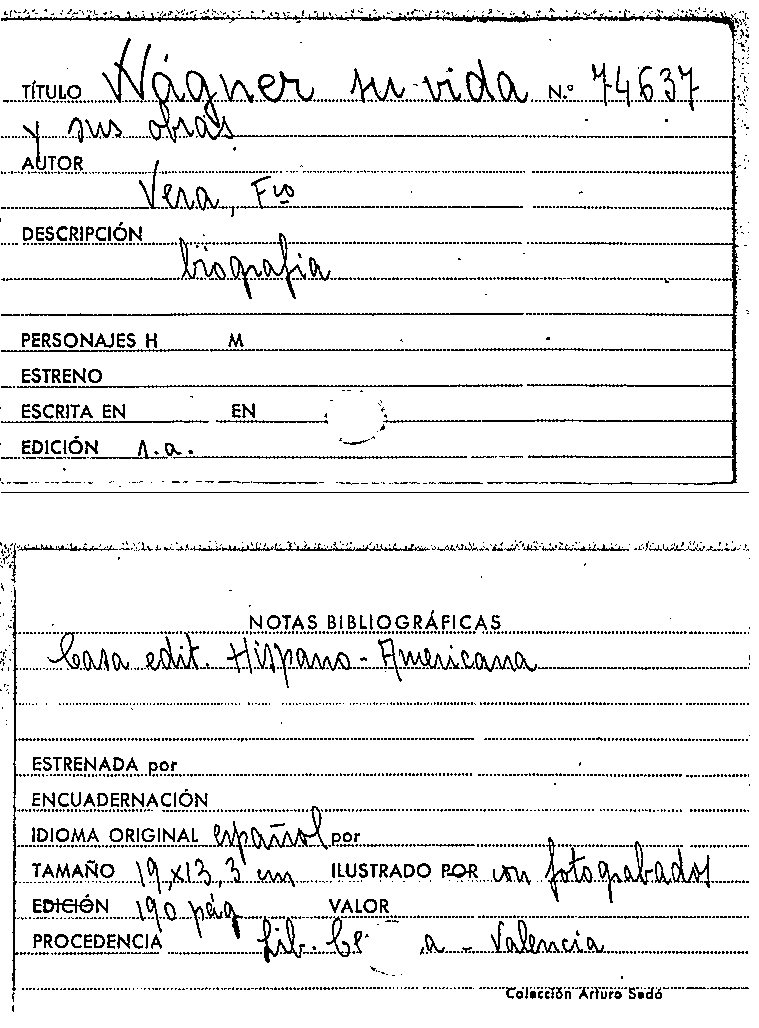 TÍTULO Wágner su vida N.º 74637
y sus obras
AUTOR
Vera, Fco
DESCRIPCIÓN
biografia
PERSONAJES H M
ESTRENO
ESCRITA EN EN
EDICIÓN s.a.
NOTAS BIBLIOGRÁFICAS
Casa edit. Hispano-Americana
ESTRENADA por
ENCUADERNACIÓN
IDIOMA ORIGINAL español por
TAMAÑO 19,x13,3 cm ILUSTRADO POR con fotograbados
EDICIÓN 190 pág VALOR
PROCEDENCIA Lib. - Valencia
Colección Arturo Sedó